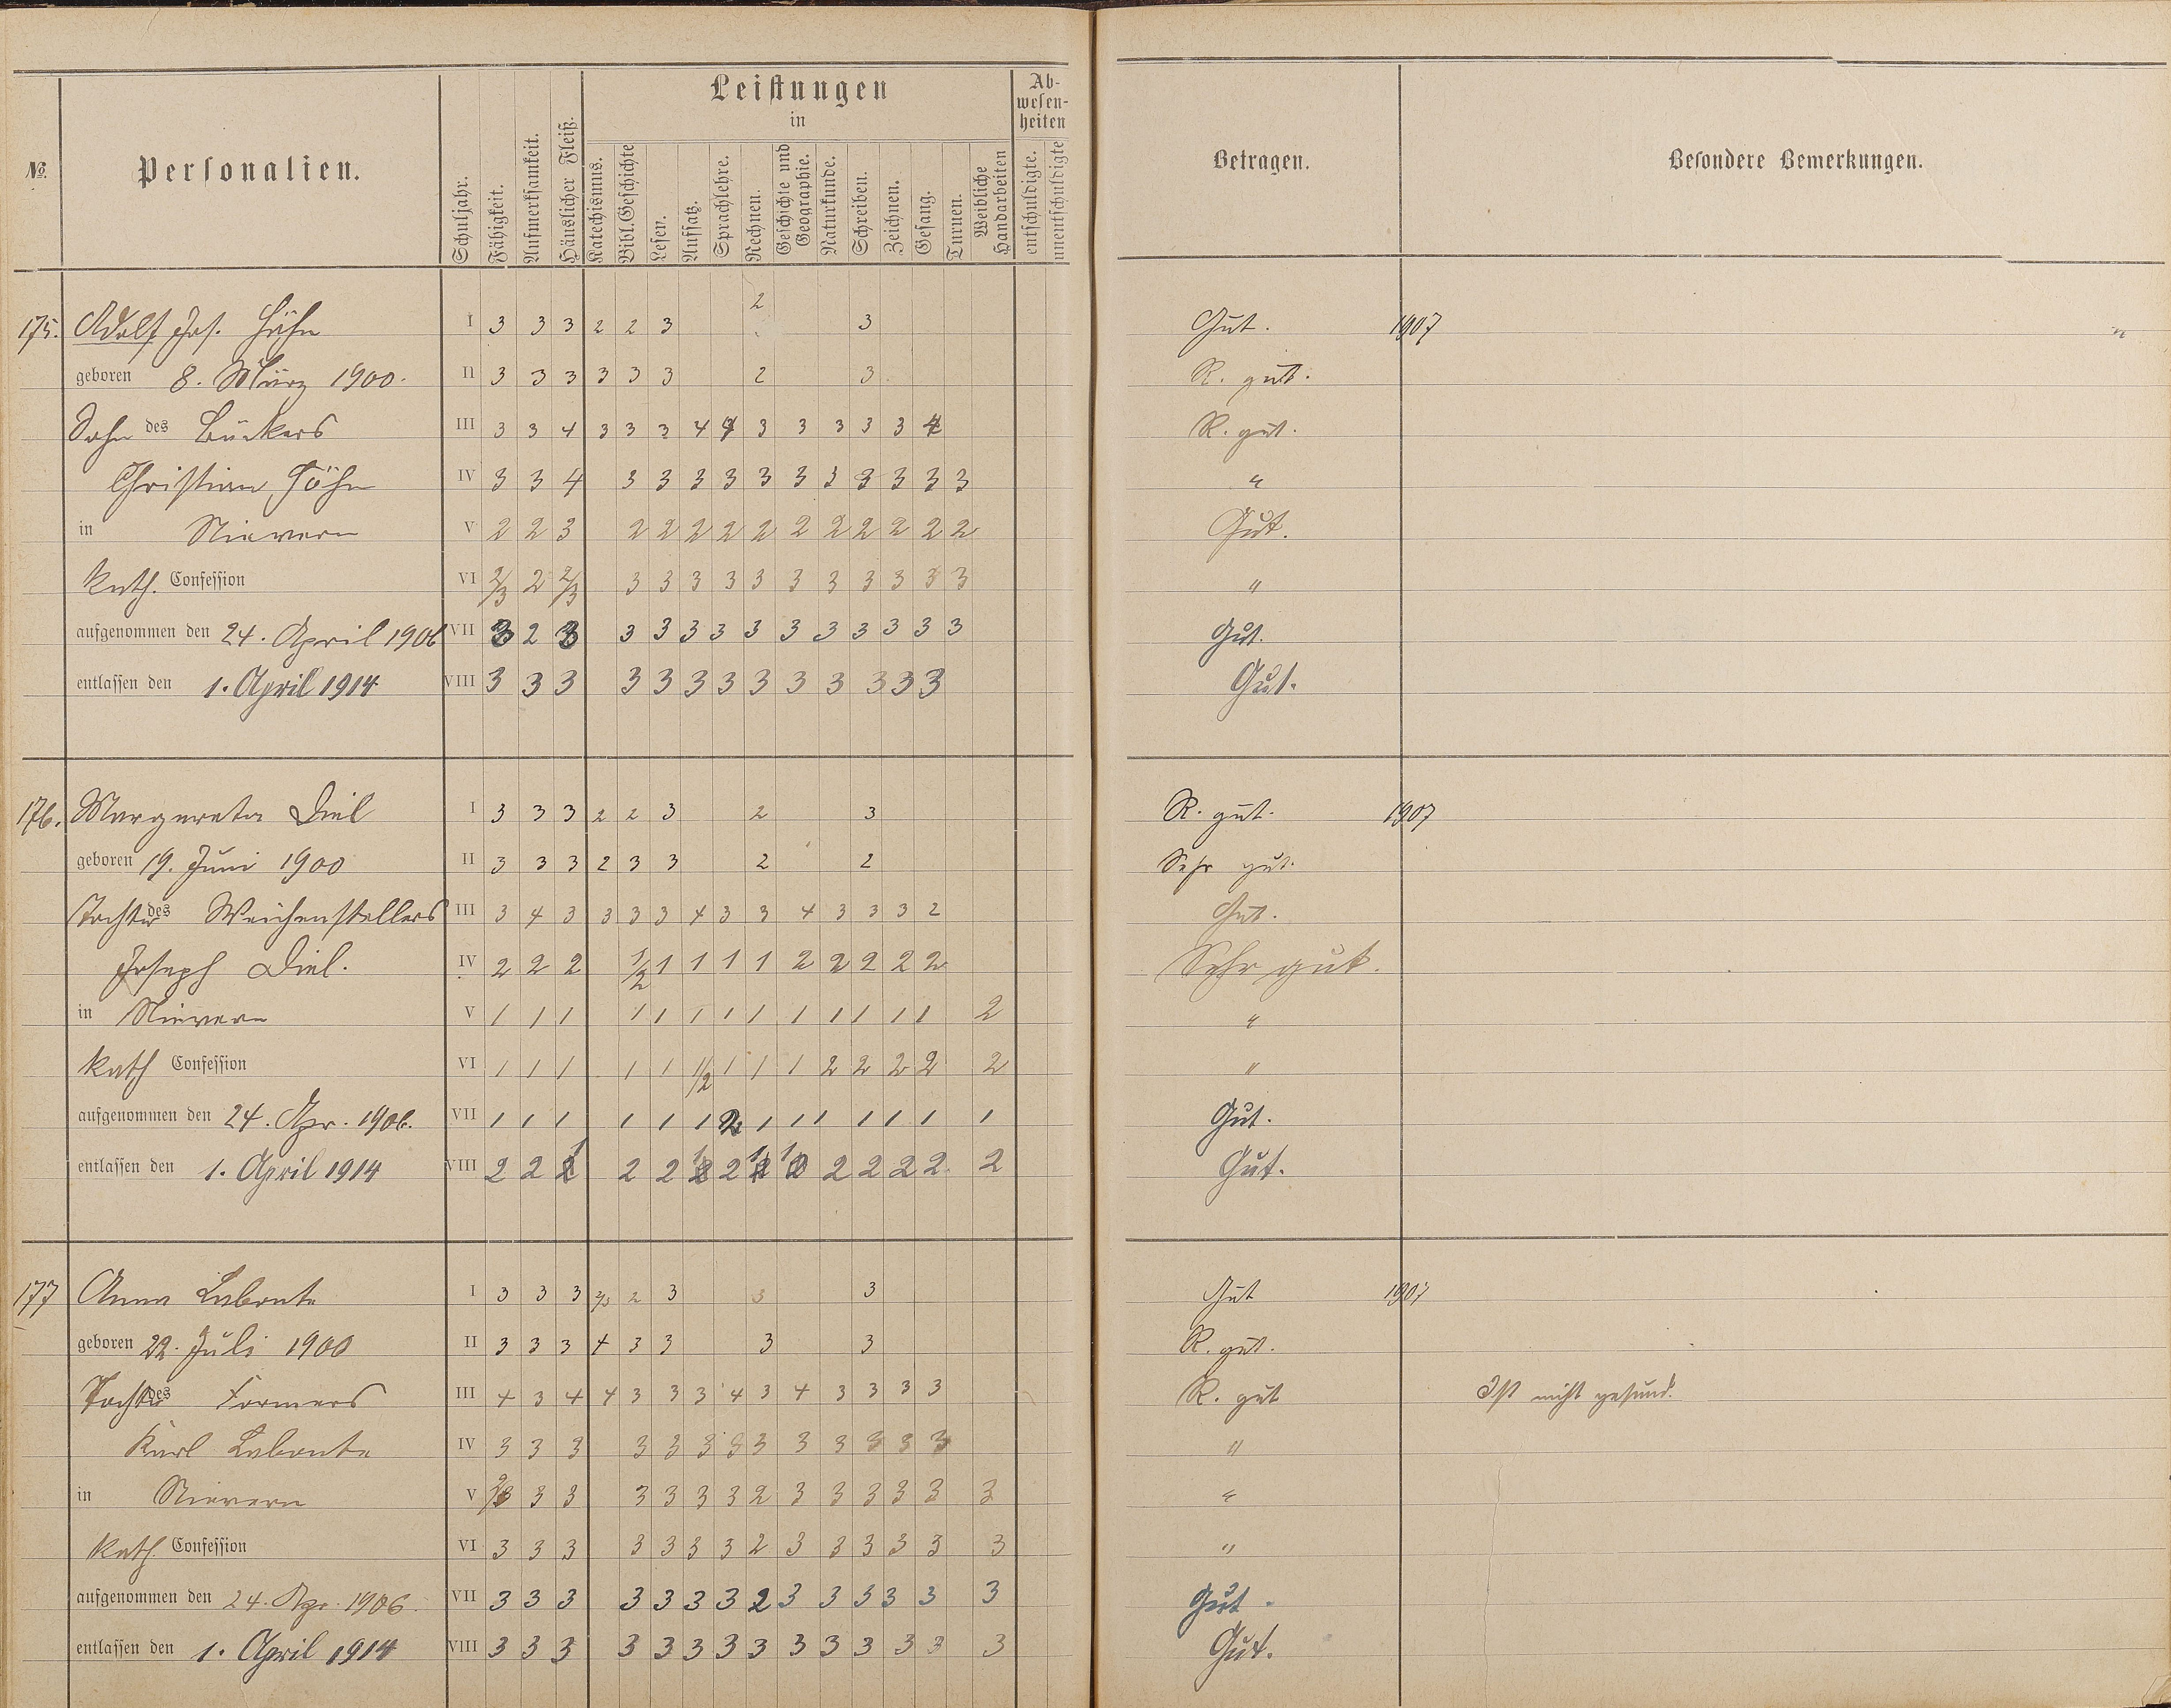 No. Personalien. Schuljahr. Fähigkeit. Aufmerksamkeit. Häuslicher Fleiß. Leistungen in Katechismus. Bibl. Geschichte Lesen. Aufsatz. Sprachlehre. Rechnen. Geschichte und Geographie. Naturkunde. Schreiben. Zeichnen. Gesang. Turnen. Weibliche Handarbeiten Ab-wesen-heiten entschuldigte. unentschuldigte Betragen. Besondere Bemerkungen.
175. Adolf Jos. Höhn I 3 3 3 2 2 3 2 3 Gut. 1907
geboren 8. März 1900. II 3 3 3 3 3 3 2 3 R. gut.
Sohn des Bäckers III 3 3 4 3 3 3 4 4 3 3 3 3 3 4 R. gut.
Christian Höhn IV 3 3 4 3 3 3 3 3 3 3 3 3 3 3 "
in Nievern V 2 2 3 2 2 2 2 2 2 2 2 2 2 2 Gut.
kath. Confession VI 2/3 2 2/3 3 3 3 3 3 3 3 3 3 3 3 "
aufgenommen den 24. April 1906 VII 3 2 3 3 3 3 3 3 3 3 3 3 3 3 Gut.
entlassen den 1. April 1914 VIII 3 3 3 3 3 3 3 3 3 3 3 3 3 Gut.
176. Margareta Diel I 3 3 3 2 2 3 2 3 R. gut. 1907
geboren 19. Juni 1900 II 3 3 3 2 3 3 2 2 Sehr gut.
Tochter des Weichenstellers III 3 4 3 3 3 3 4 3 3 4 3 3 3 2 Gut.
Joseph Diel. IV 2 2 2 1/2 1 1 1 1 2 2 2 2 2 Sehr gut.
in Nievern V 1 1 1 1 1 1 1 1 1 1 1 1 1 2 "
kath Confession VI 1 1 1 1 1 1/2 1 1 1 2 2 2 2 2 "
aufgenommen den 24. Apr. 1906. VII 1 1 1 1 1 1 2 1 1 1 1 1 1 1 Gut.
entlassen den 1. April 1914 VIII 2 2 1 2 2 1 2 1 1 2 2 2 2 2 Gut.
177 Anna Labonte I 3 3 3 2/3 2 3 3 3 Gut 1907
geboren 22. Juli 1900 II 3 3 3 4 3 3 3 3 R. gut.
Tochter des Formers III 4 3 4 4 3 3 3 4 3 4 3 3 3 3 R. gut Ist nicht gesund.
Karl Labonte IV 3 3 3 3 3 3 3 3 3 3 3 3 3 "
in Nievern V 2/3 3 3 3 3 3 3 2 3 3 3 3 3 3 "
kath. Confession VI 3 3 3 3 3 3 3 2 3 3 3 3 3 3 "
aufgenommen den 24. Apr. 1906. VII 3 3 3 3 3 3 3 2 3 3 3 3 3 3 Gut.
entlassen den 1. April 1914 VIII 3 3 3 3 3 3 3 3 3 3 3 3 3 3 Gut.